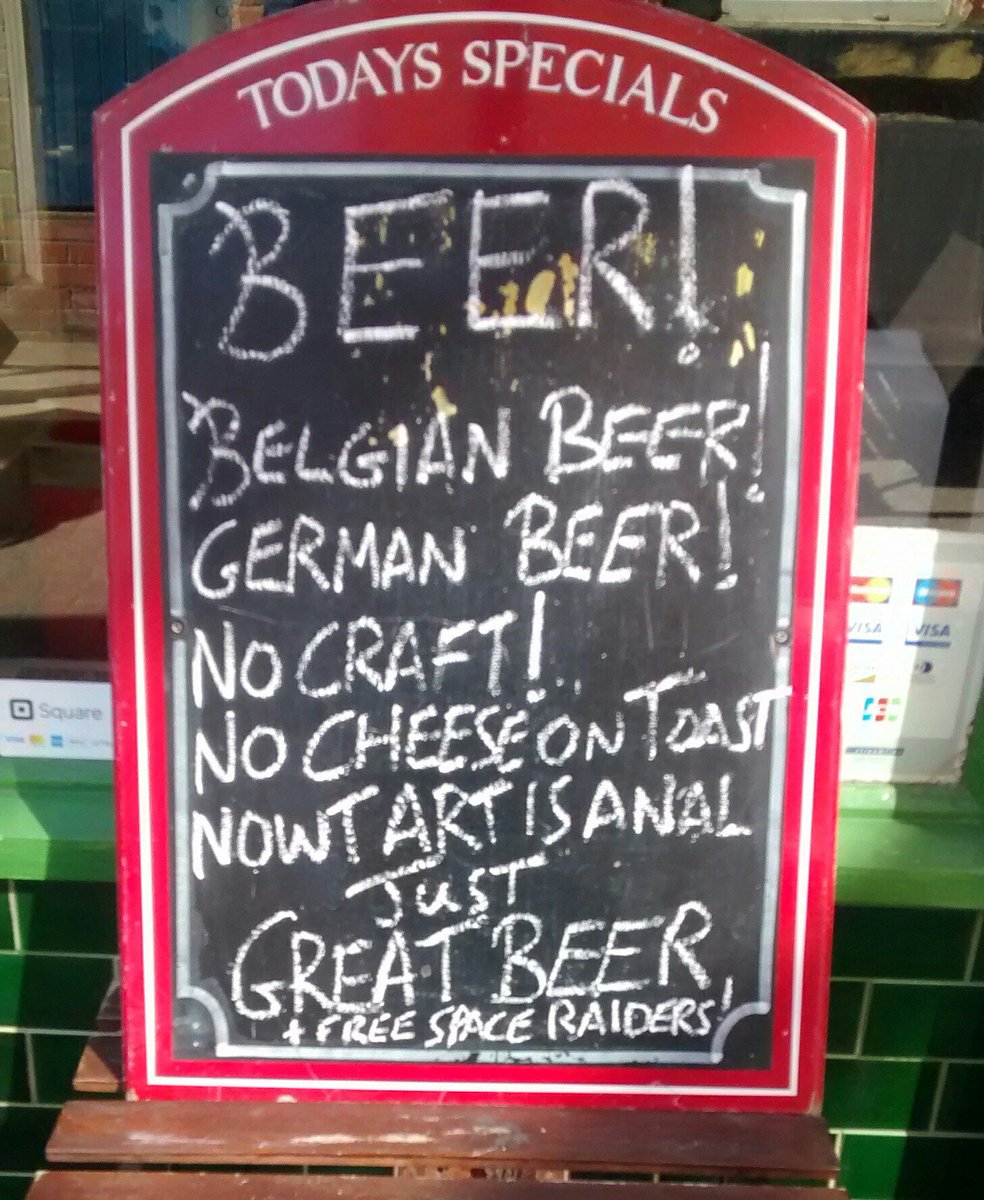 TODAYS SPECIALS
BEER!
BELGIAN BEER!
GERMAN BEER!
NO CRAFT!
NO CHEESE ON TOAST
NOWT ARTISANAL
JUST
GREAT BEER
+ FREE SPACE RAIDERS!
VISA VISA
Square
JCB